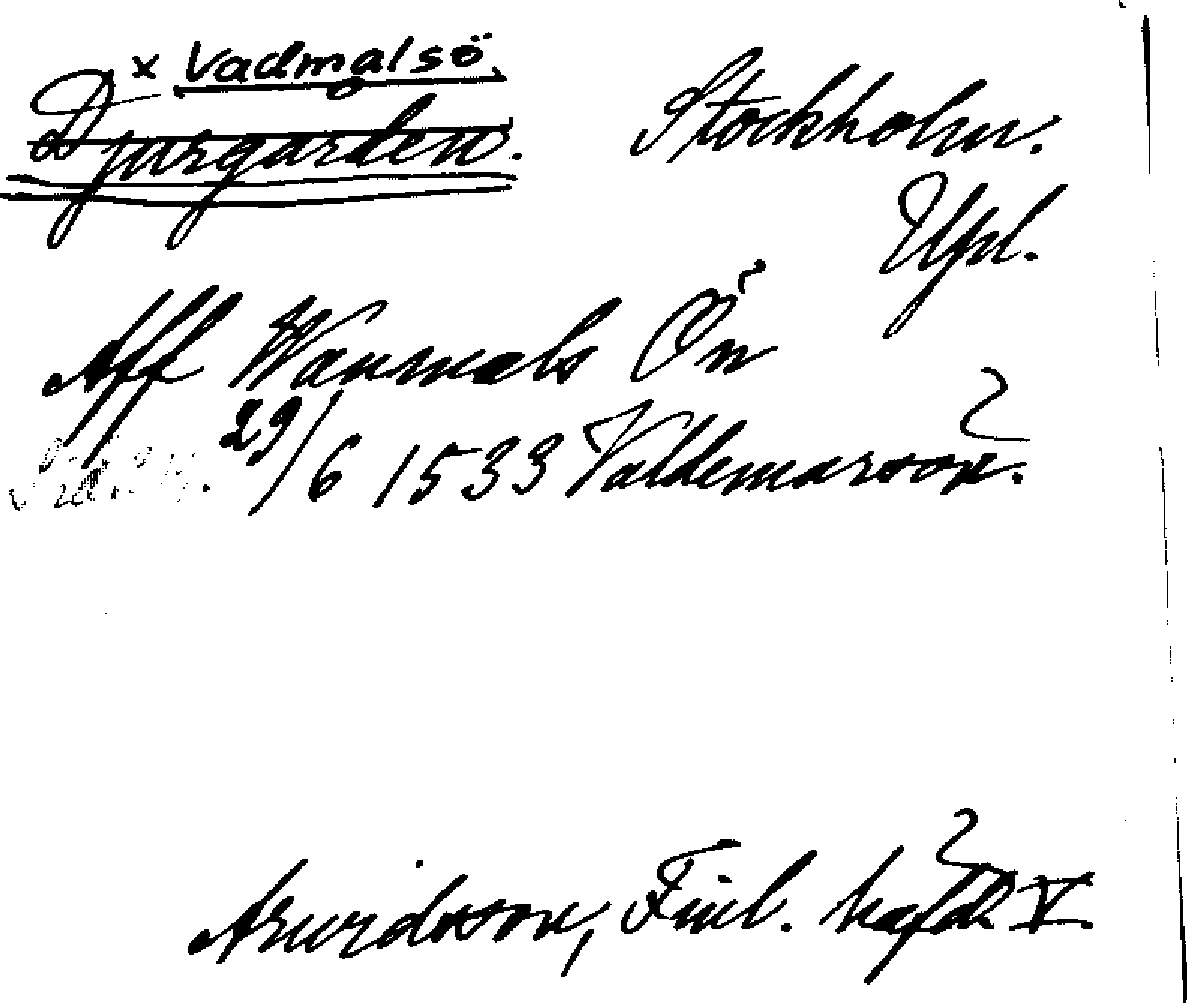 x Vadmalsö.
Djurgården. Stockholm.
Upl.
Aff Waumals Ön
29/6 1533 Valdemarson.
Arwidsson, Finl. hafd. V.